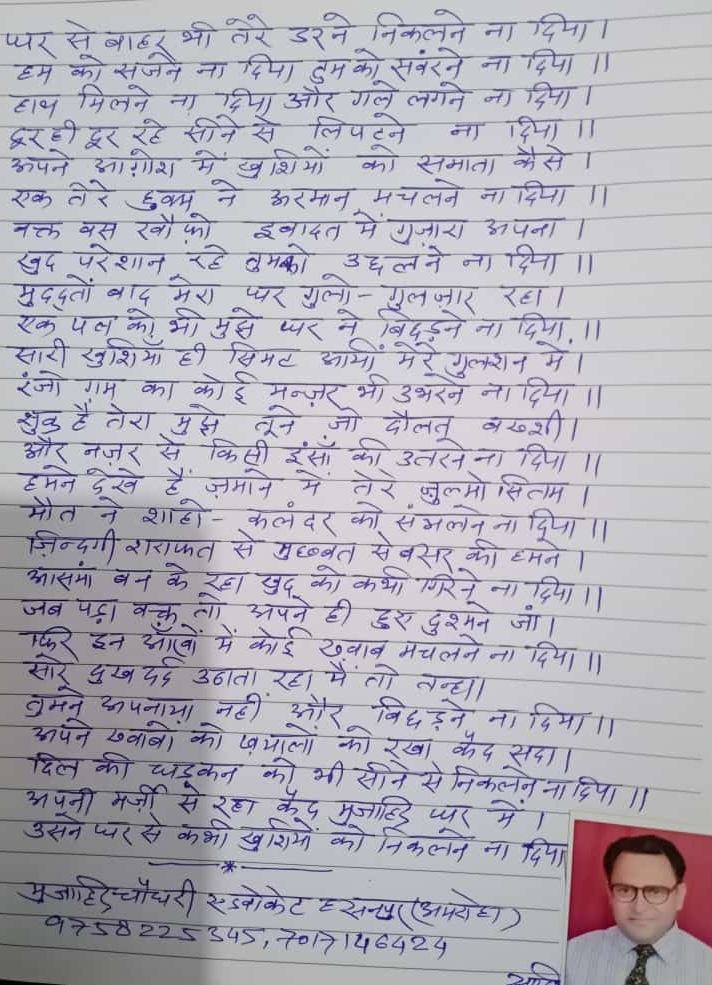 घर से बाहर भी तेरे डरने निकलने ना दिया।
हम को सजने ना दिया तुम को संवरने ना दिया॥
हाथ मिलने ना दिया और गले लगने ना दिया।
दूर ही दूर रहे सीने से लिपटने ना दिया॥
अपने आग़ोश में खुशियों को समाता कैसे।
एक तेरे हुक्म ने अरमान मचलने ना दिया॥
वक्त बस ख्वौफ़ो इबादत में गुज़ारा अपना।
खुद परेशान रहे तुमको उछलने ना दिया॥
मुद्दतों बाद मेरा घर गुलो-गुलज़ार रहा।
एक पल को भी मुझे घर ने बिछड़ने ना दिया॥
सारी खुशियाँ ही सिमट आयीं मेरे गुलशन में।
रंजो गम का कोई मन्ज़र भी उभरने ना दिया॥
शुक्र है तेरा मुझे तूने जो दौलत बख्शी।
और नज़र से किसी इंसाँ की उतरने ना दिया॥
हमने देखे हैं ज़माने में तेरे ज़ुल्मो सितम।
मौत ने शाहो-कलंदर को संभलने ना दिया॥
ज़िन्दगी शराफत से मुहब्बत से बसर की हमने।
आसमां बन के रहा खुद को कभी गिरने ना दिया॥
जब पड़ा वक्त तो अपने ही हुए दुश्मने जां।
फिर इन आँखों में कोई ख्वाब मचलने ना दिया॥
सारे दुख दर्द उठाता रहा मैं तो तन्हा।
तुमने अपनाया नहीं और बिछड़ने ना दिया॥
अपने ख्वाबों को ख़यालों को रखा कैद सदा।
दिल की धड़कन को भी सीने से निकलने ना दिया॥
अपनी मर्ज़ी से रहा कैद मुजाहिद घर में।
उसने घर से कभी खुशियों को निकलने ना दिया
मुजाहिद चौधरी एडवोकेट हसनपुर (अमरोहा)
9758225345, 7017146424